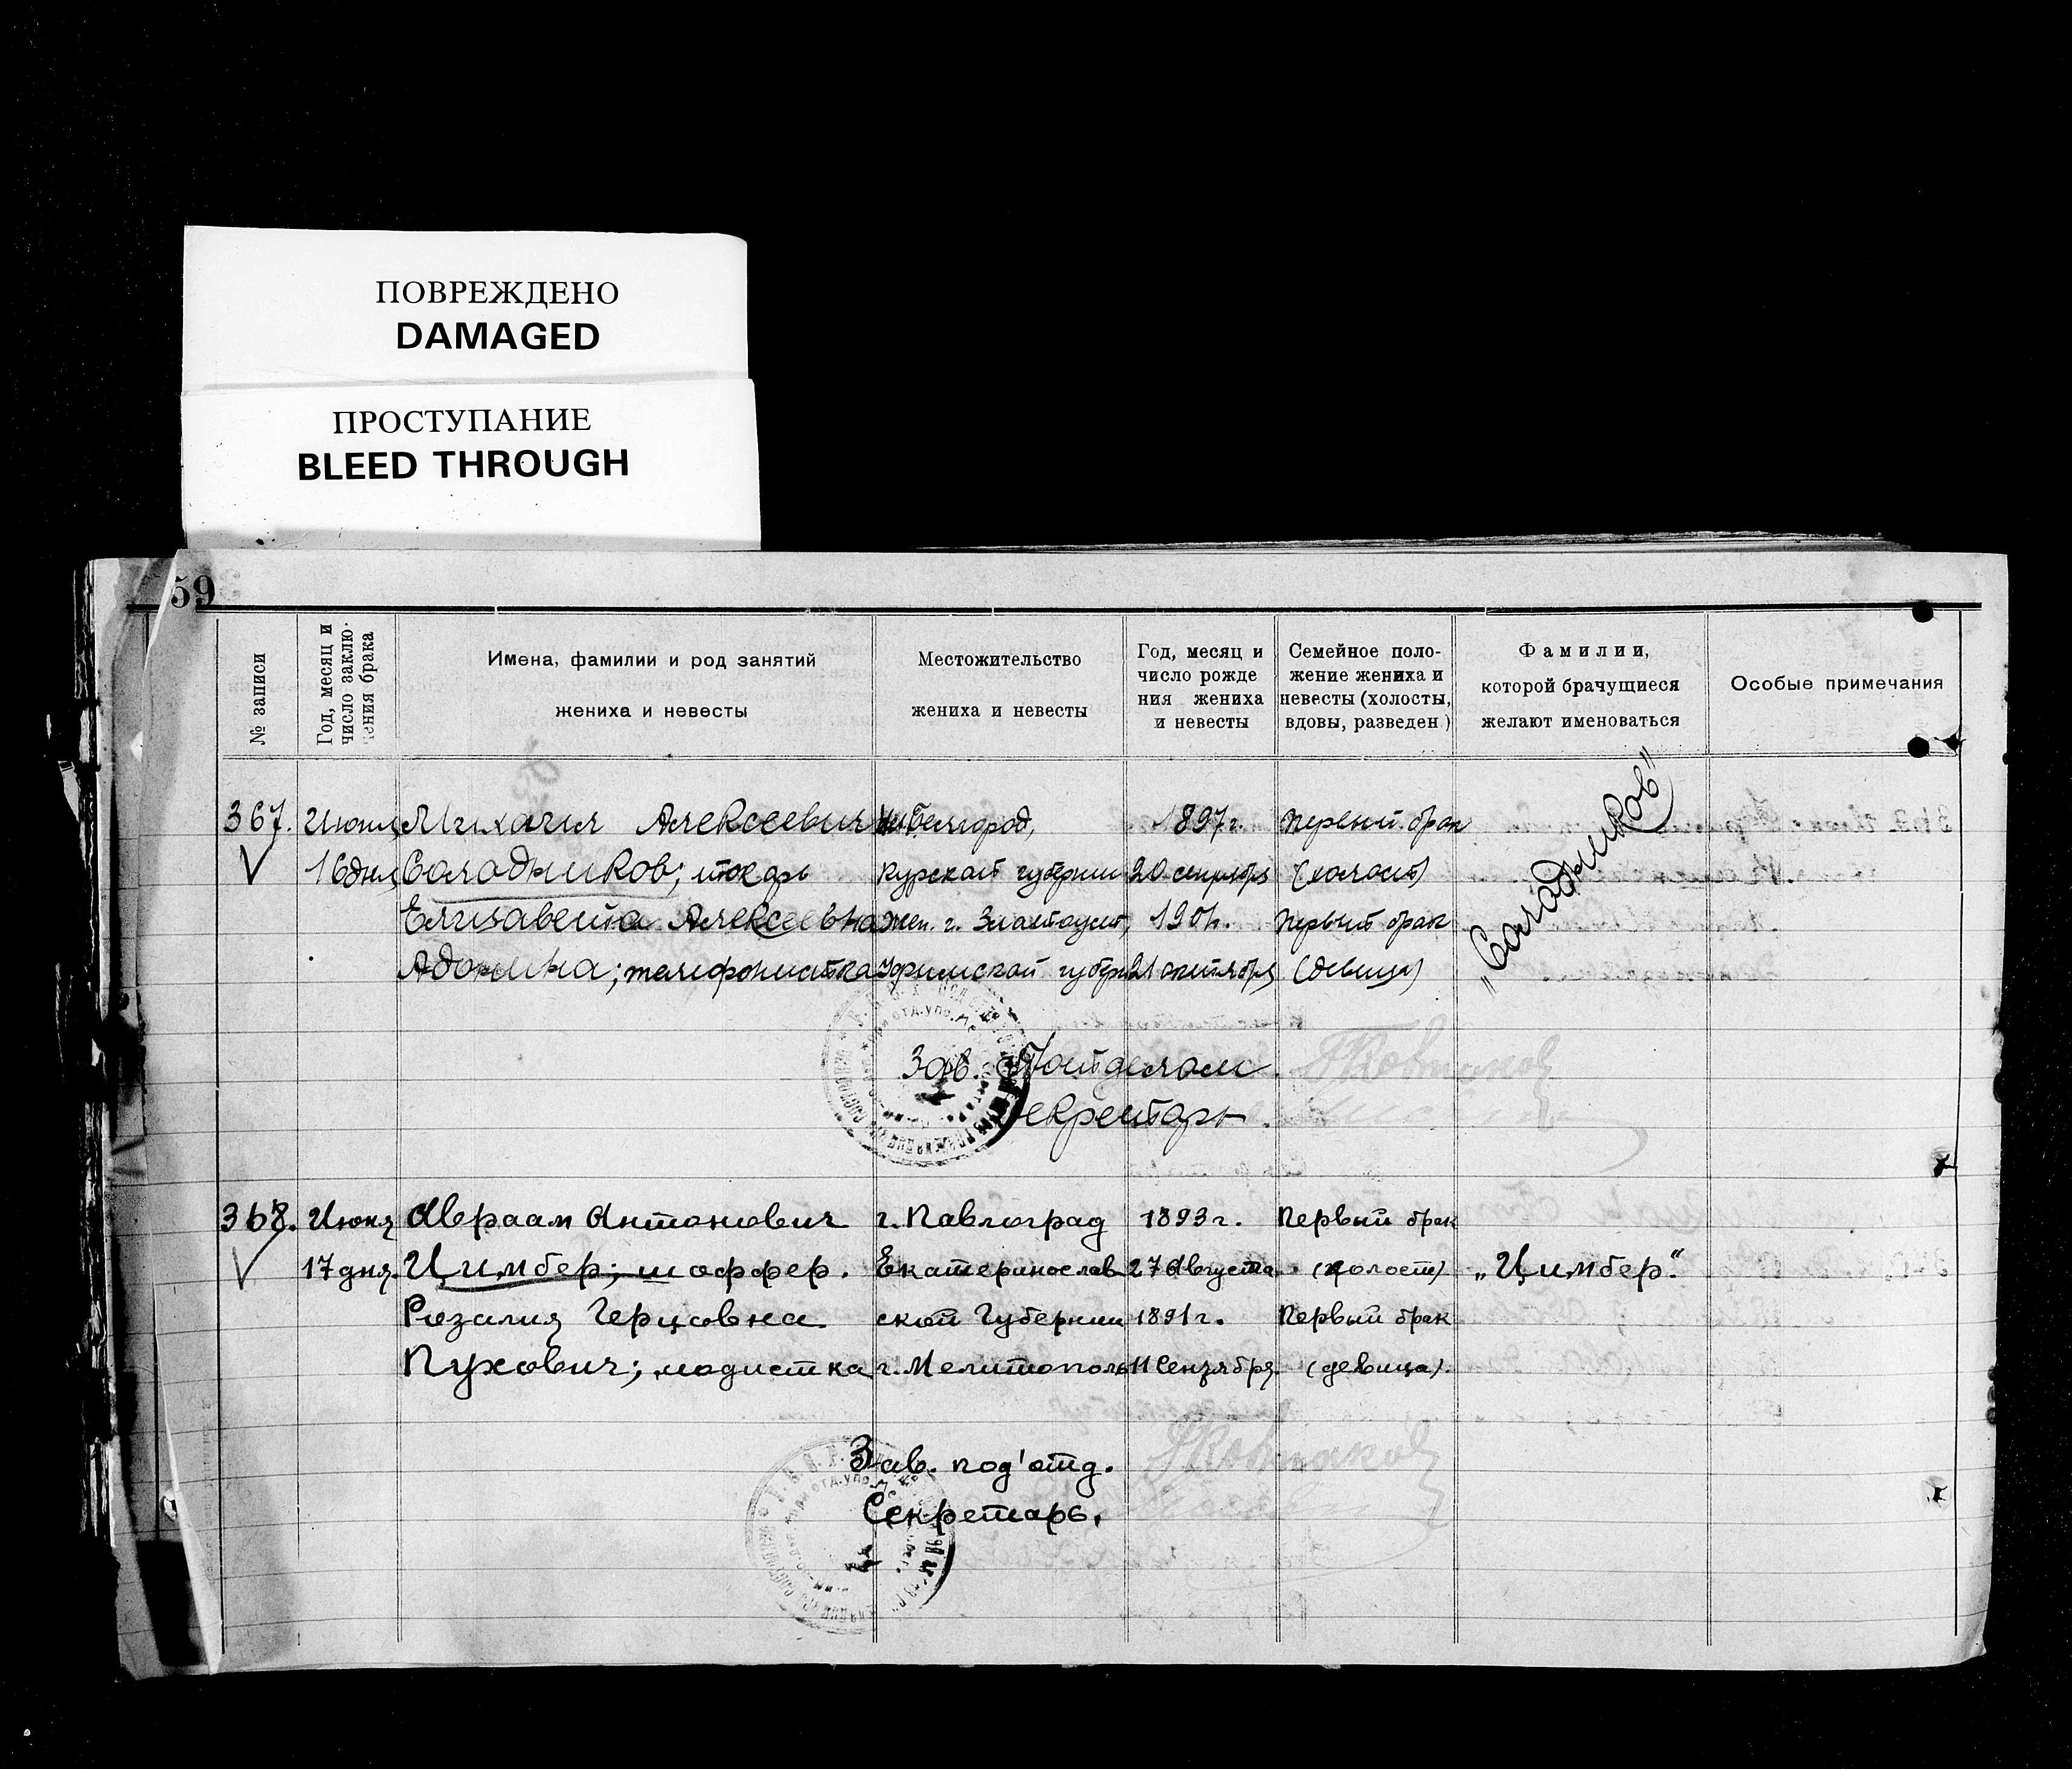 ПОВРЕЖДЕНО
DAMAGED
ПРОСТУПАНИЕ
BLEED THROUGH
59
№ записи
Год, месяц и
число заклю-
чения брака
Имена, фамилии и род занятий
жениха и невесты
Местожительство
жениха и невесты
Год, месяц и
число рожде
ния жениха
и невесты
Семейное поло-
жение жениха и
невесты (холосты,
вдовы, разведен)
Фамилии,
которой брачущиеся
желают именоваться
Особые примечания
367. Июня Михаил Алексеевич Белгород, 1897 г. Первый брак
16 дня Солодников; токарь Курской губернии 20 сентября (холост) „Солодников"
Елизавета Алексеевна г. Златоуст, 1901 г. Первый брак
Адонина; телефонистка Уфимской губерн 21 октября (девица)
Зав. Подотделом
Секретарь.
368. Июня Авраам Антонович г. Павлоград 1893 г. Первый брак
17 дня. Цимбер; шоффер. Екатеринослав 27 Августа (холост) „Цимбер."
Розалия Герцовна ской Губернии 1891 г. Первый брак
Пухович; модистка г. Мелитополь 11 Сентября (девица).
Зав. под'отд.
Секретарь.